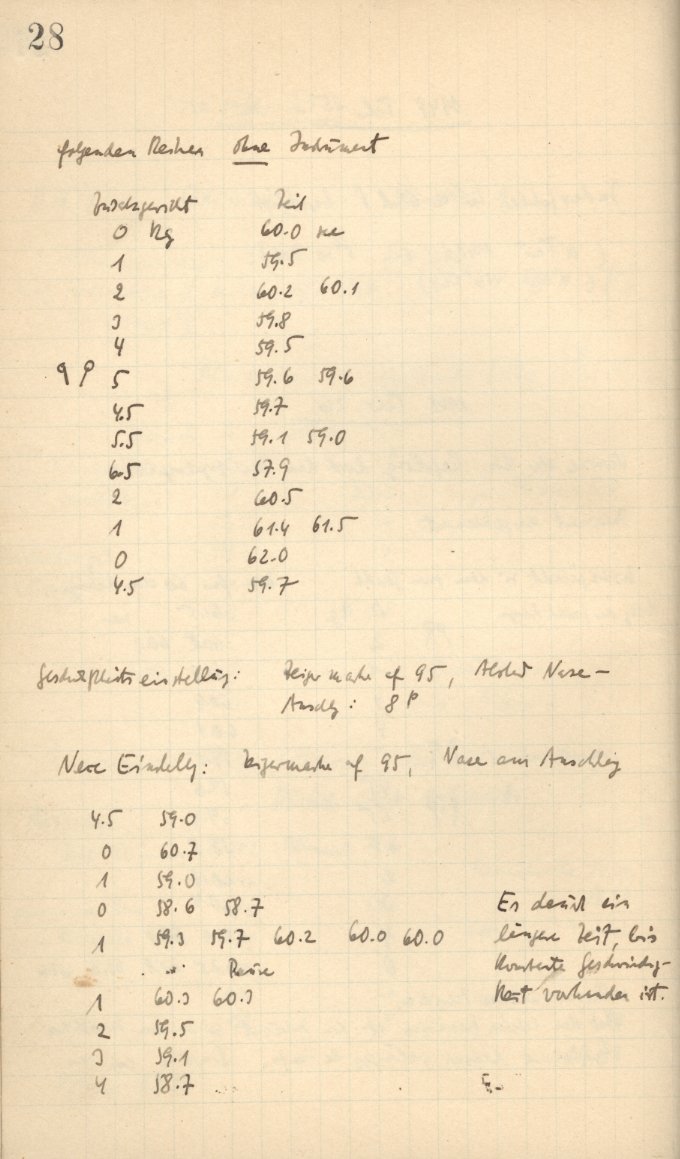 28
folgenden Reihen ohne Instrument
Zusatzgewicht Zeit
0 Kg 60.0 sec
1 59.5
2 60.2 60.1
3 59.8
4 59.5
5 59.6 59.6
4.5 59.7
5.5 59.1 59.0
6.5 57.9
2 60.5
1 61.4 61.5
0 62.0
4.5 59.7
Geschwindigkeitseinstellung: Zeigermarke auf 95, Abstand Nase-
Anschlag: 8
Neue Einstellg: Zeigermarke auf 95, Nase am Anschlag
4.5 59.0
0 60.7
1 59.0
0 58.6 58.7
1 59.3 59.7 60.2 60.0 60.0
Pause
1 60.3 60.3
2 59.5
3 59.1
4 58.7
Es dauert ein
längere Zeit, bis
konstante Geschwindig-
keit vorhanden ist.